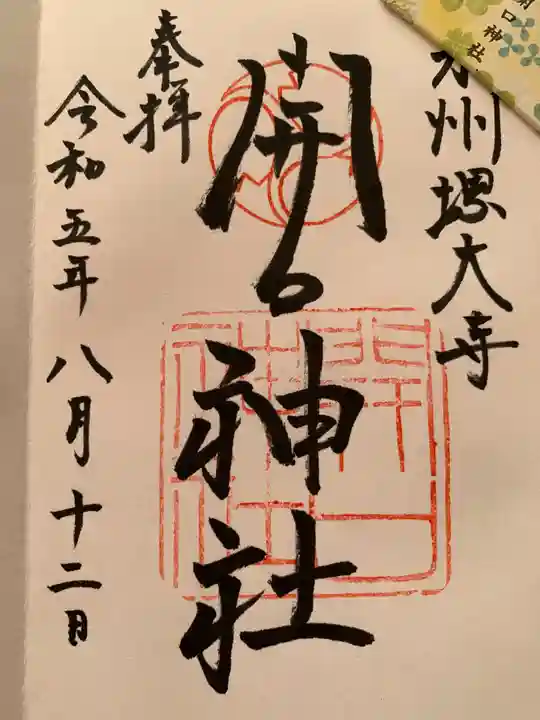 開口神社
州堺大寺
開口神社
奉拝
令和五年八月十二日
開口神社